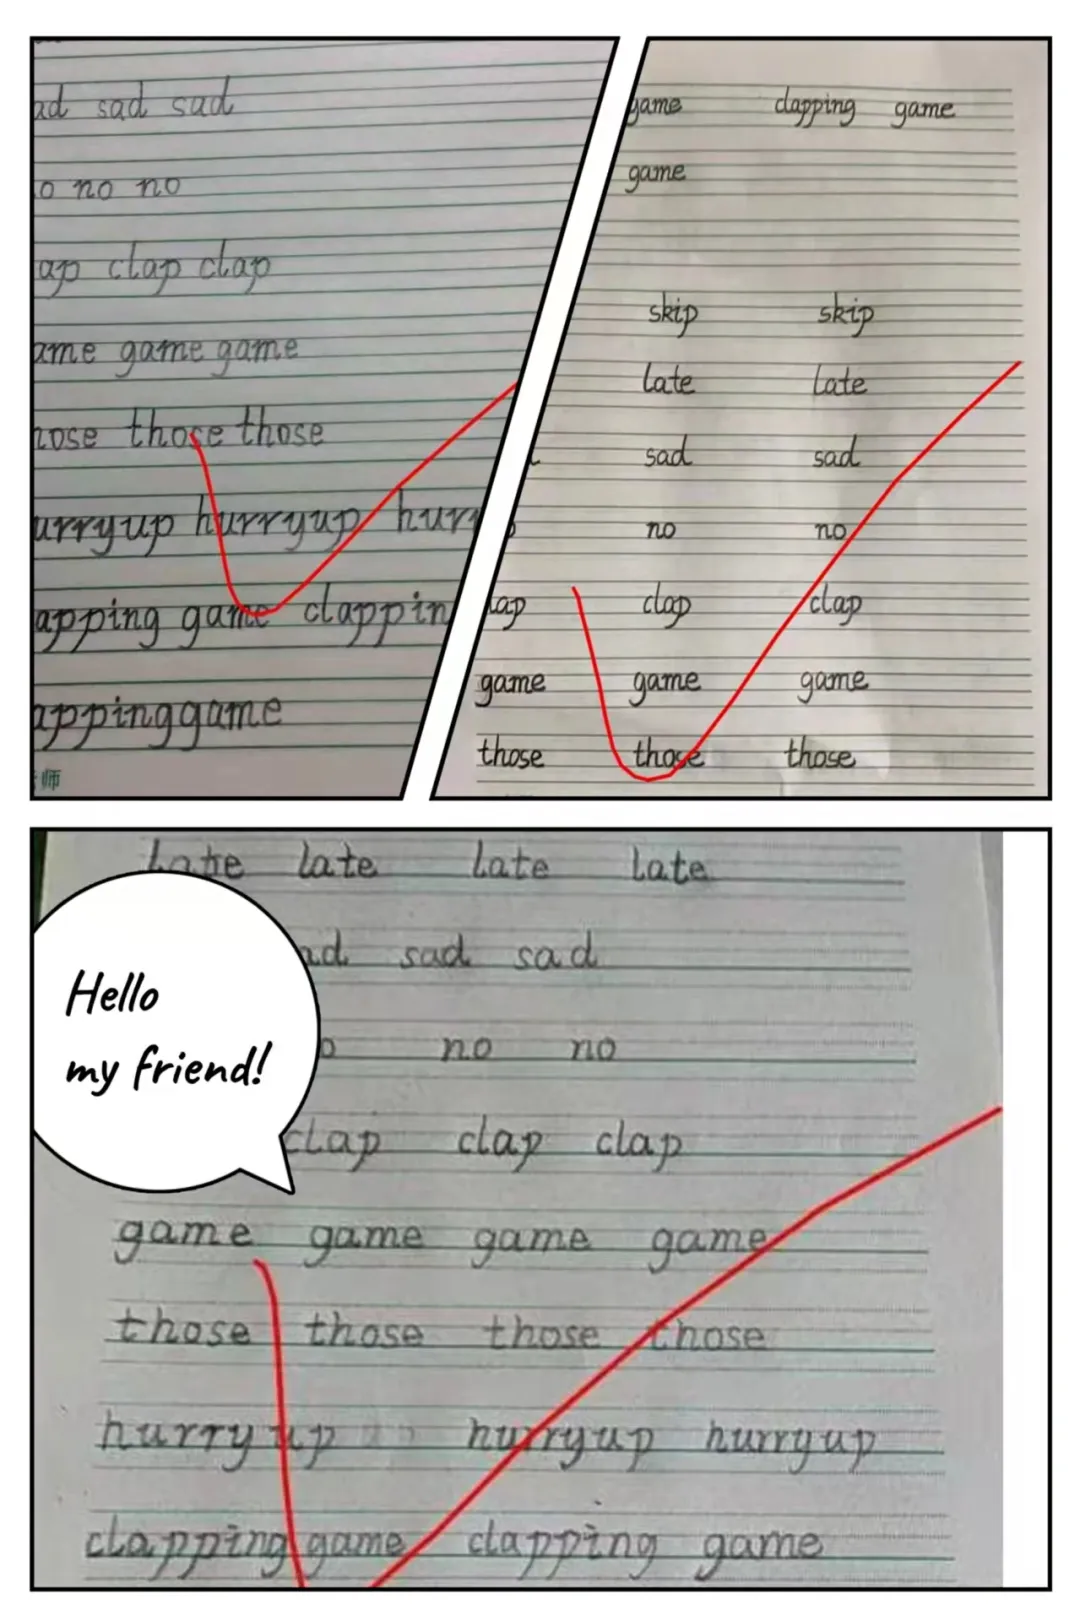 sad sad
no no
clap clap
game game
those those
hurryup
game
game clapping game
game
skip skip
late late
sad sad
no no
clap clap
game game game
those those those
late late late
Hello
my friend!
sad sad
no no
clap clap clap
game game game game
those those those those
hurryup hurryup hurryup
clapping game clapping game